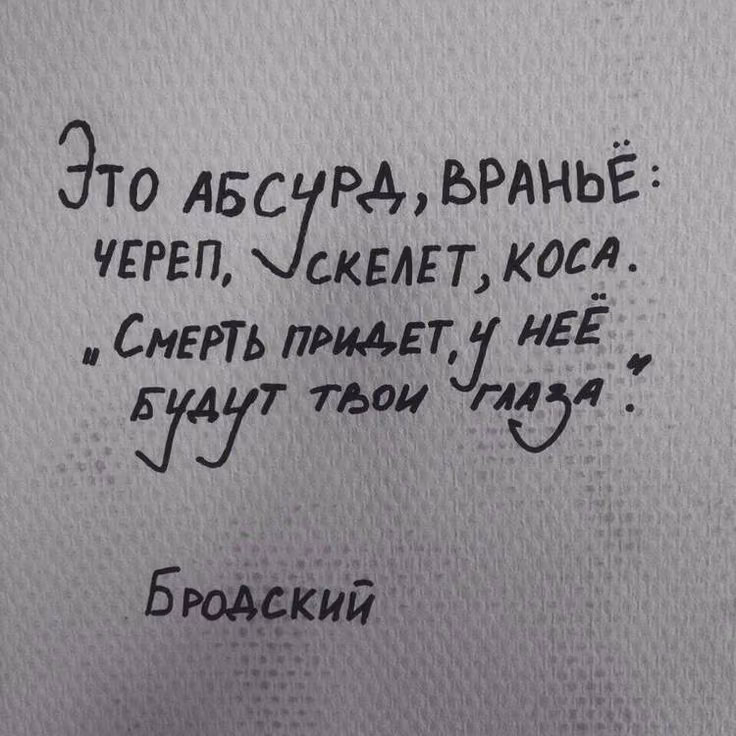 Это абсурд, враньё:
череп, скелет, коса.
„Смерть придет, у неё
будут твои глаза".
Бродский